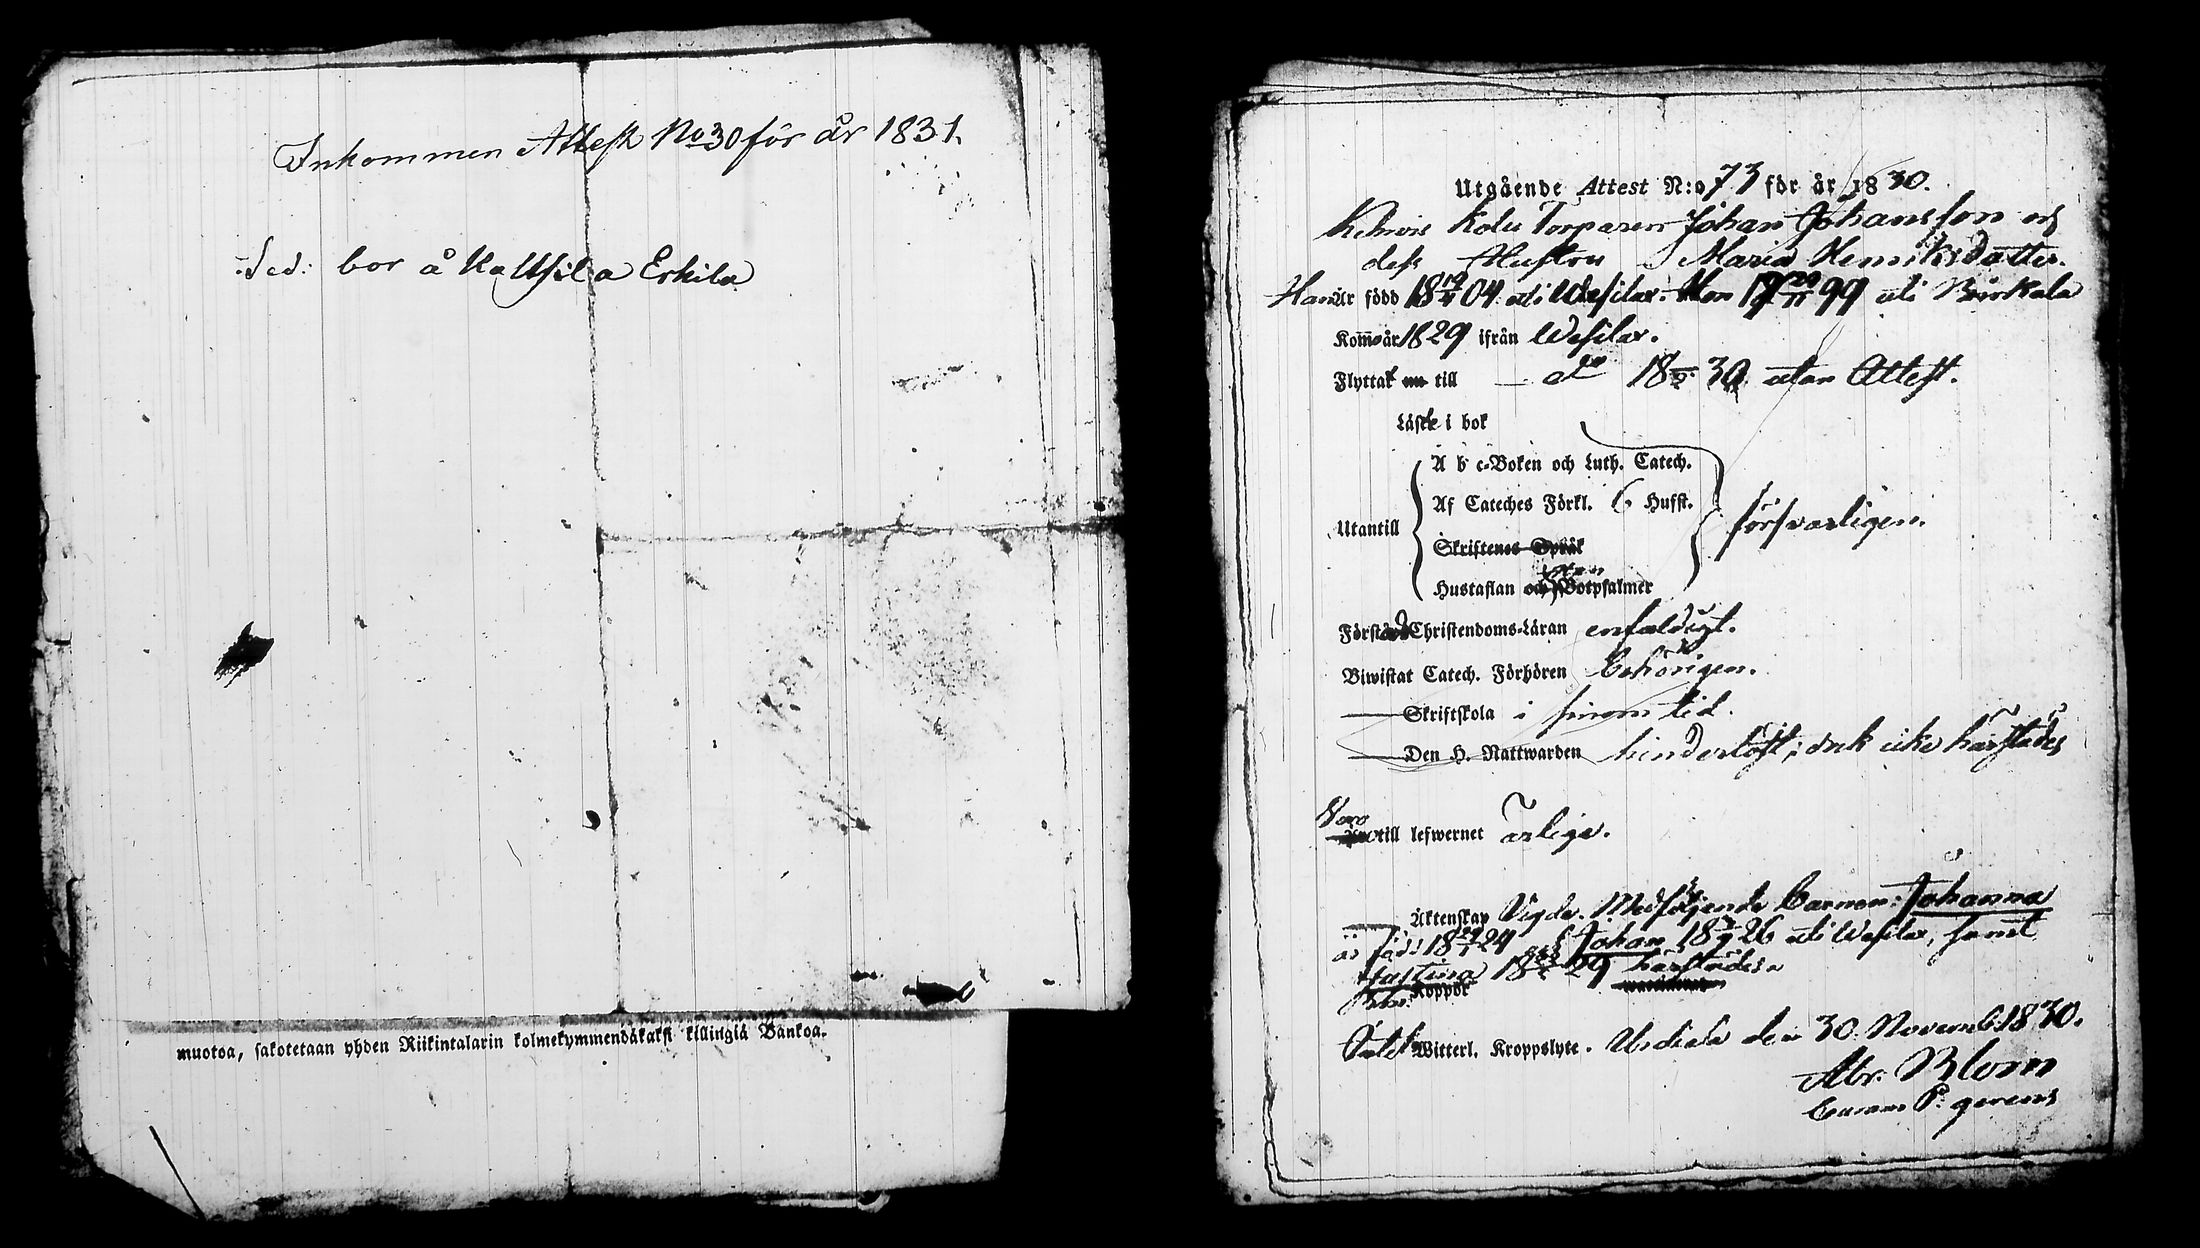 Inkommen Attest No 30 för år 1831.
:Ied: bor å Kaltsila Erkila
muotoa, sakotetaan yhden Riikintalarin kolmekymmendäkaksi killingiä Bankoa.
Utgående Attest N:o 73 för år 1830.
Kolu Torparen Johan Johansson och
dess Hustru Maria Henriksdotter.
Han Är född 18 19/4 04 uti Wesilax. Hon 17 29/11 99 uti Birkala
Kom år 1829 ifrån Wesilax.
Flyttat till — do 18 30 utan Attest.
Läste i bok
A b c-Boken och Luth. Catech.
Utantill Af Cateches Förkl. 6 Hufst. försvarligen.
Skriftenes Språk
Hustaflan och utan Botpsalmer
Förstånd Christendoms-Läran enfaldigt.
Biwistat Catech. Förhören behörigen.
— Skriftskola i sinom tid.
— Den H. Nattwarden hinderlöst; dock icke härstädes
Voro till lefwernet ärlige.
— Äktenskap Vigde. Medföljande barnen: Johanna
är född 18 24 Johan 18 26 uti Wesilax, samt
Justina 18 29 härstädes.
Koppor
Witterl. Kroppslyte. Urdiala den 30 Novemb. 1830.
Abr. Blom
Curam P: gerens